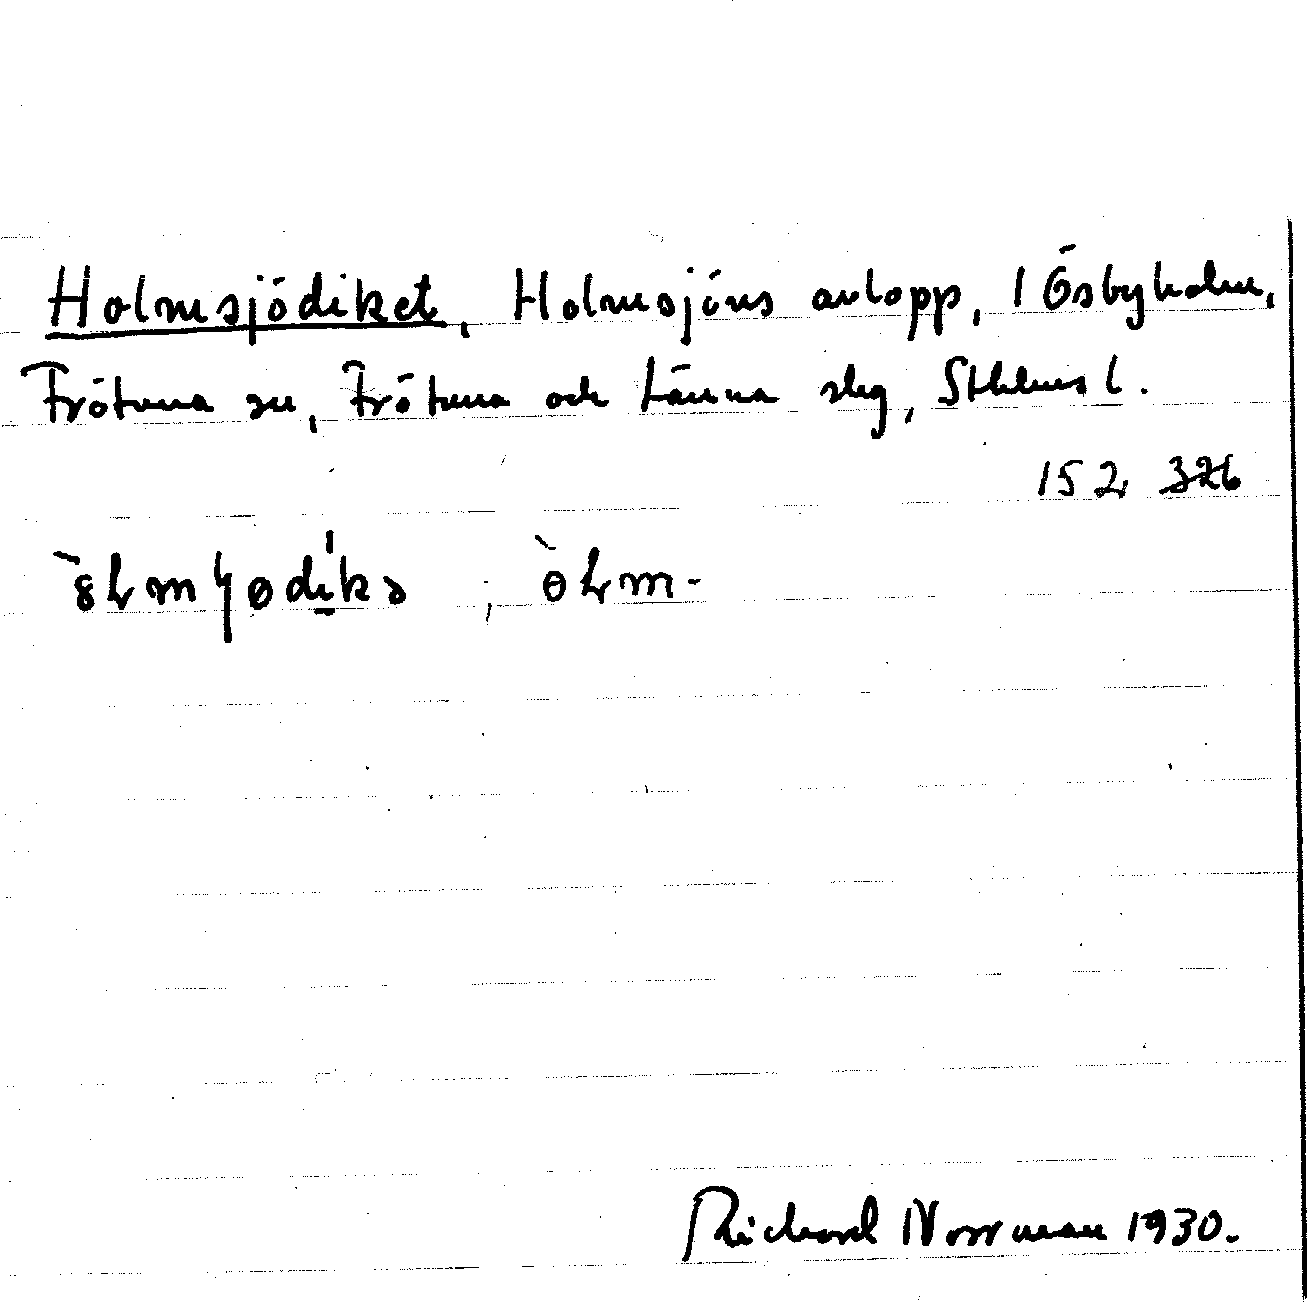 Holmsjödiket, Holmsjöns avlopp, 1 Ösbyholm,
Frötuna sn, Frötuna och Länna slg, Sthlms l.
152 326
Richard Norrman 1930.